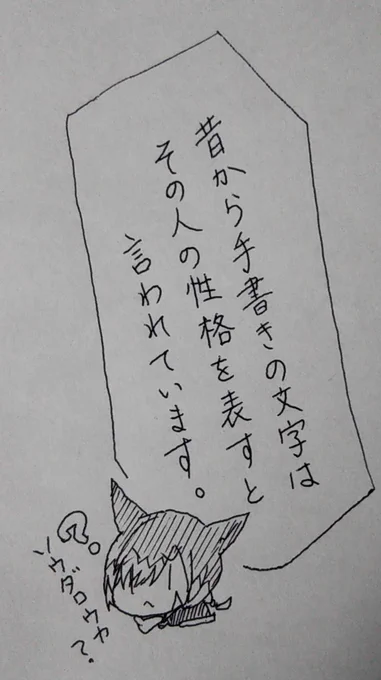 昔から手書きの文字は
その人の性格を表すと
言われています。
?
ソウダロウカ?